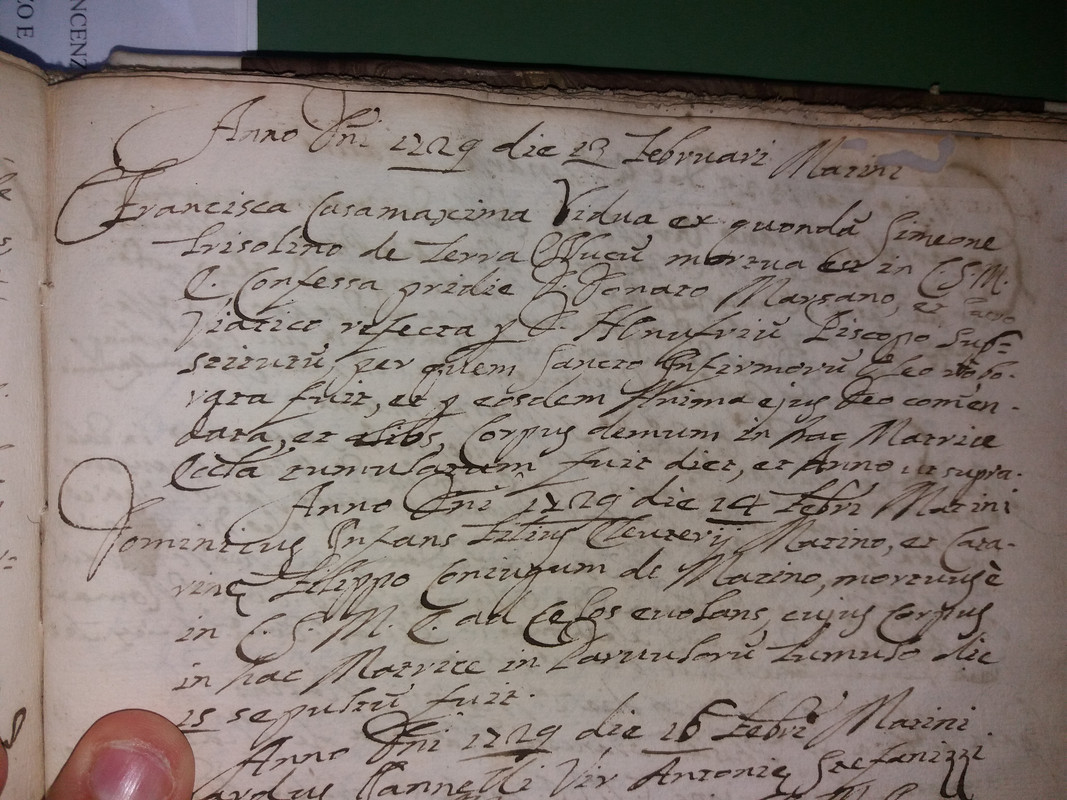 NCENZ
CO E
Anno Dni 1729 die 13 Februari Marini
Francisca Casamaxima Vidua ex quondã Simeone
Grisolino de Terra mortua est in C. S. M.
E. Confessa pridie D. Donato Marsano, et Sacro
Viatico refecta p D. Honufriũ Piscopo Sub=
stitutũ, per quem Sancto Infirmorũ Oleo robo-
rata fuit, et p eosdem Anima ejus Deo comen-
data, et alios, Corpus demum in hac Matrice
Eccla tumulatum fuit diet, et Anno ut supra.
Anno Dni 1729 die 14 Febri Marini
Dominicus Infans Filius Eleuterij Marino, et Cata-
rinę Filippo Coniugum de Marino, mortuus è
in C. S. M. E. ad Celos evolans, cujus Corpus
in hac Matrice in Parvulorũ tumulo die
15 sepultũ fuit.
Anno Dni 1729 die 16 Febri Marini
Iannelli Vir Antonię Stefanizzi